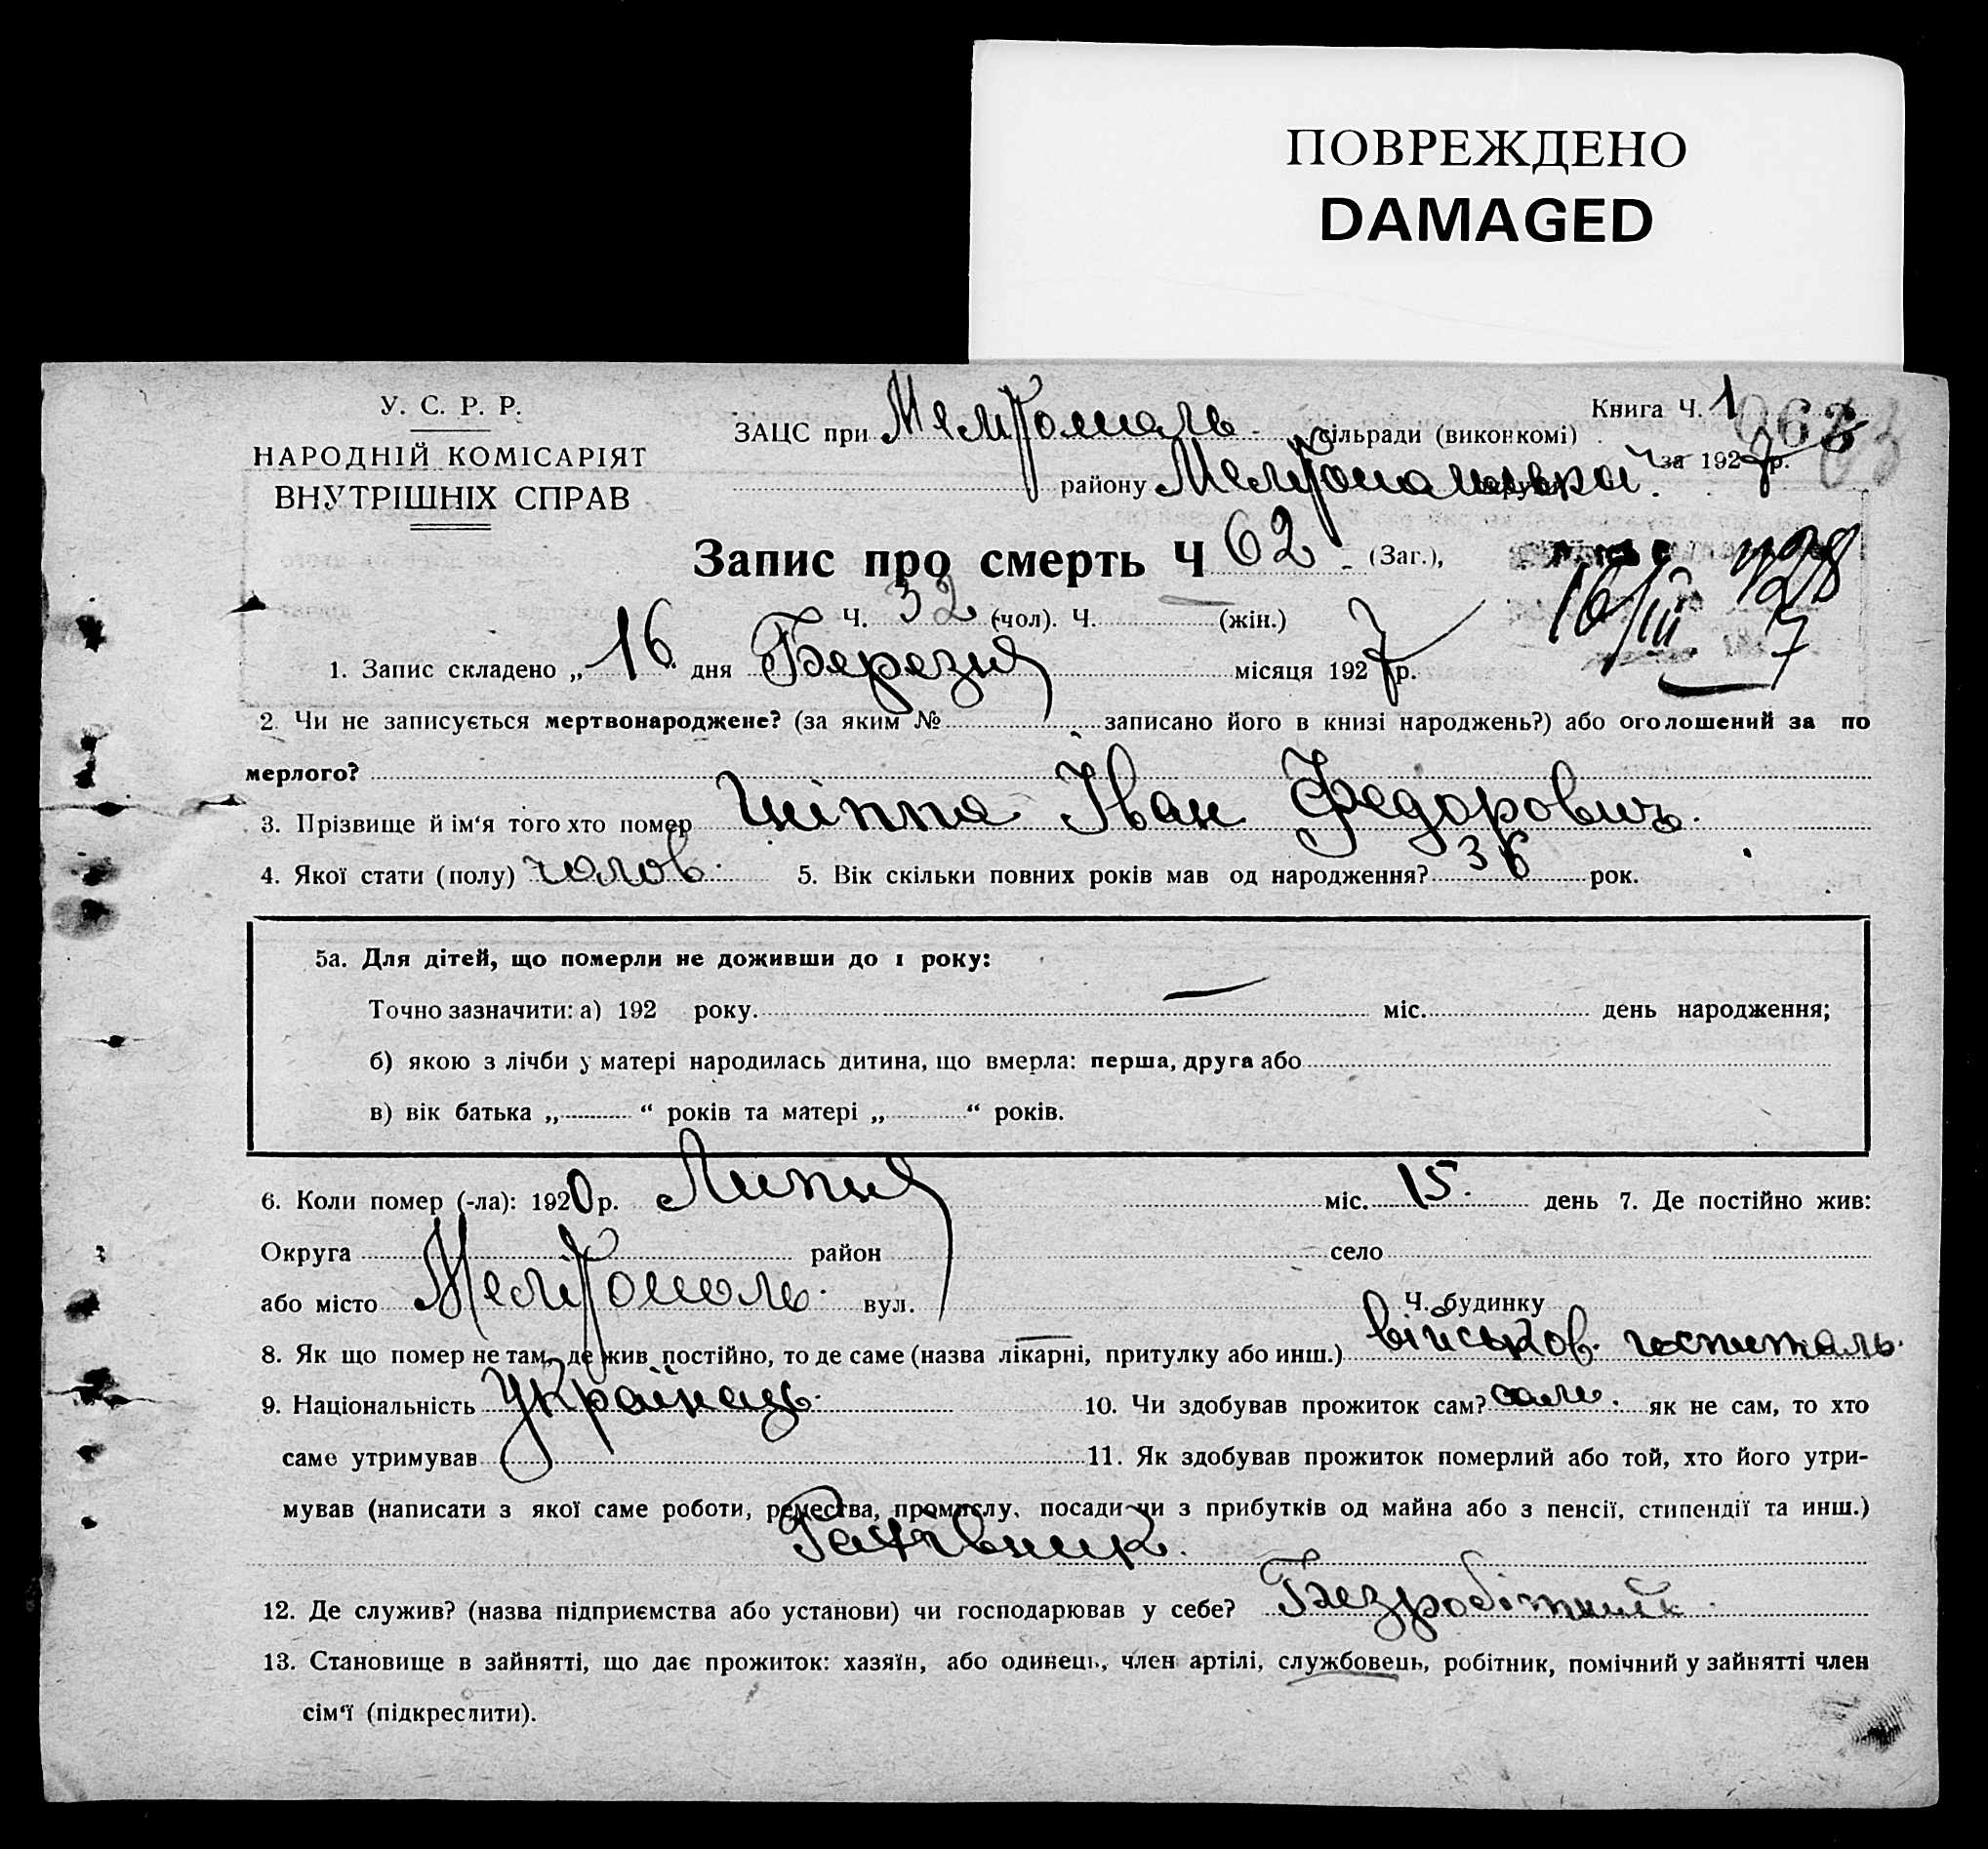 ПОВРЕЖДЕНО
DAMAGED
У. С. Р. Р.
НАРОДНІЙ КОМІСАРІЯТ
ВНУТРІШНІХ СПРАВ
ЗАЦС при Мелітополь сільради (виконкомі)
району Мелітопольської
Книга Ч. 1
за 1927 р.
Запис про смерть Ч 62 (Заг.),
Ч. 32 (чол). Ч. — (жін.)
16/III 7
1. Запис складено „ 16 дня Березня місяця 1927 р.
2. Чи не записується мертвонароджене? (за яким № записано його в книзі народжень?) або оголошений за по
мерлого?
3. Прізвище й ім'я того хто помер Іван Федорович.
4. Якої стати (полу) чолов. 5. Вік скільки повних років мав од народження? 36 рок.
5а. Для дітей, що померли не доживши до 1 року:
Точно зазначити: а) 192 року. — міс. день народження;
б) якою з лічби у матері народилась дитина, що вмерла: перша, друга або
в) вік батька „ “ років та матері „ “ років.
6. Коли помер (-ла): 1920 р. Липня міс. 15. день 7. Де постійно жив:
Округа район село
або місто Мелітополь. вул. Ч. будинку
8. Як що помер не там, де жив постійно, то де саме (назва лікарні, притулку або инш.) військов. госпиталь.
9. Національність Українець. 10. Чи здобував прожиток сам? сам. як не сам, то хто
саме утримував 11. Як здобував прожиток померлий або той, хто його утри-
мував (написати з якої саме роботи, ремества, промислу, посади чи з прибутків од майна або з пенсії, стипендії та инш.)
12. Де служив? (назва підприємства або установи) чи господарював у себе? Безробітний
13. Становище в зайнятті, що дає прожиток: хазяїн, або одинець, член артілі, службовець, робітник, помічний у зайнятті член
сім'ї (підкреслити).